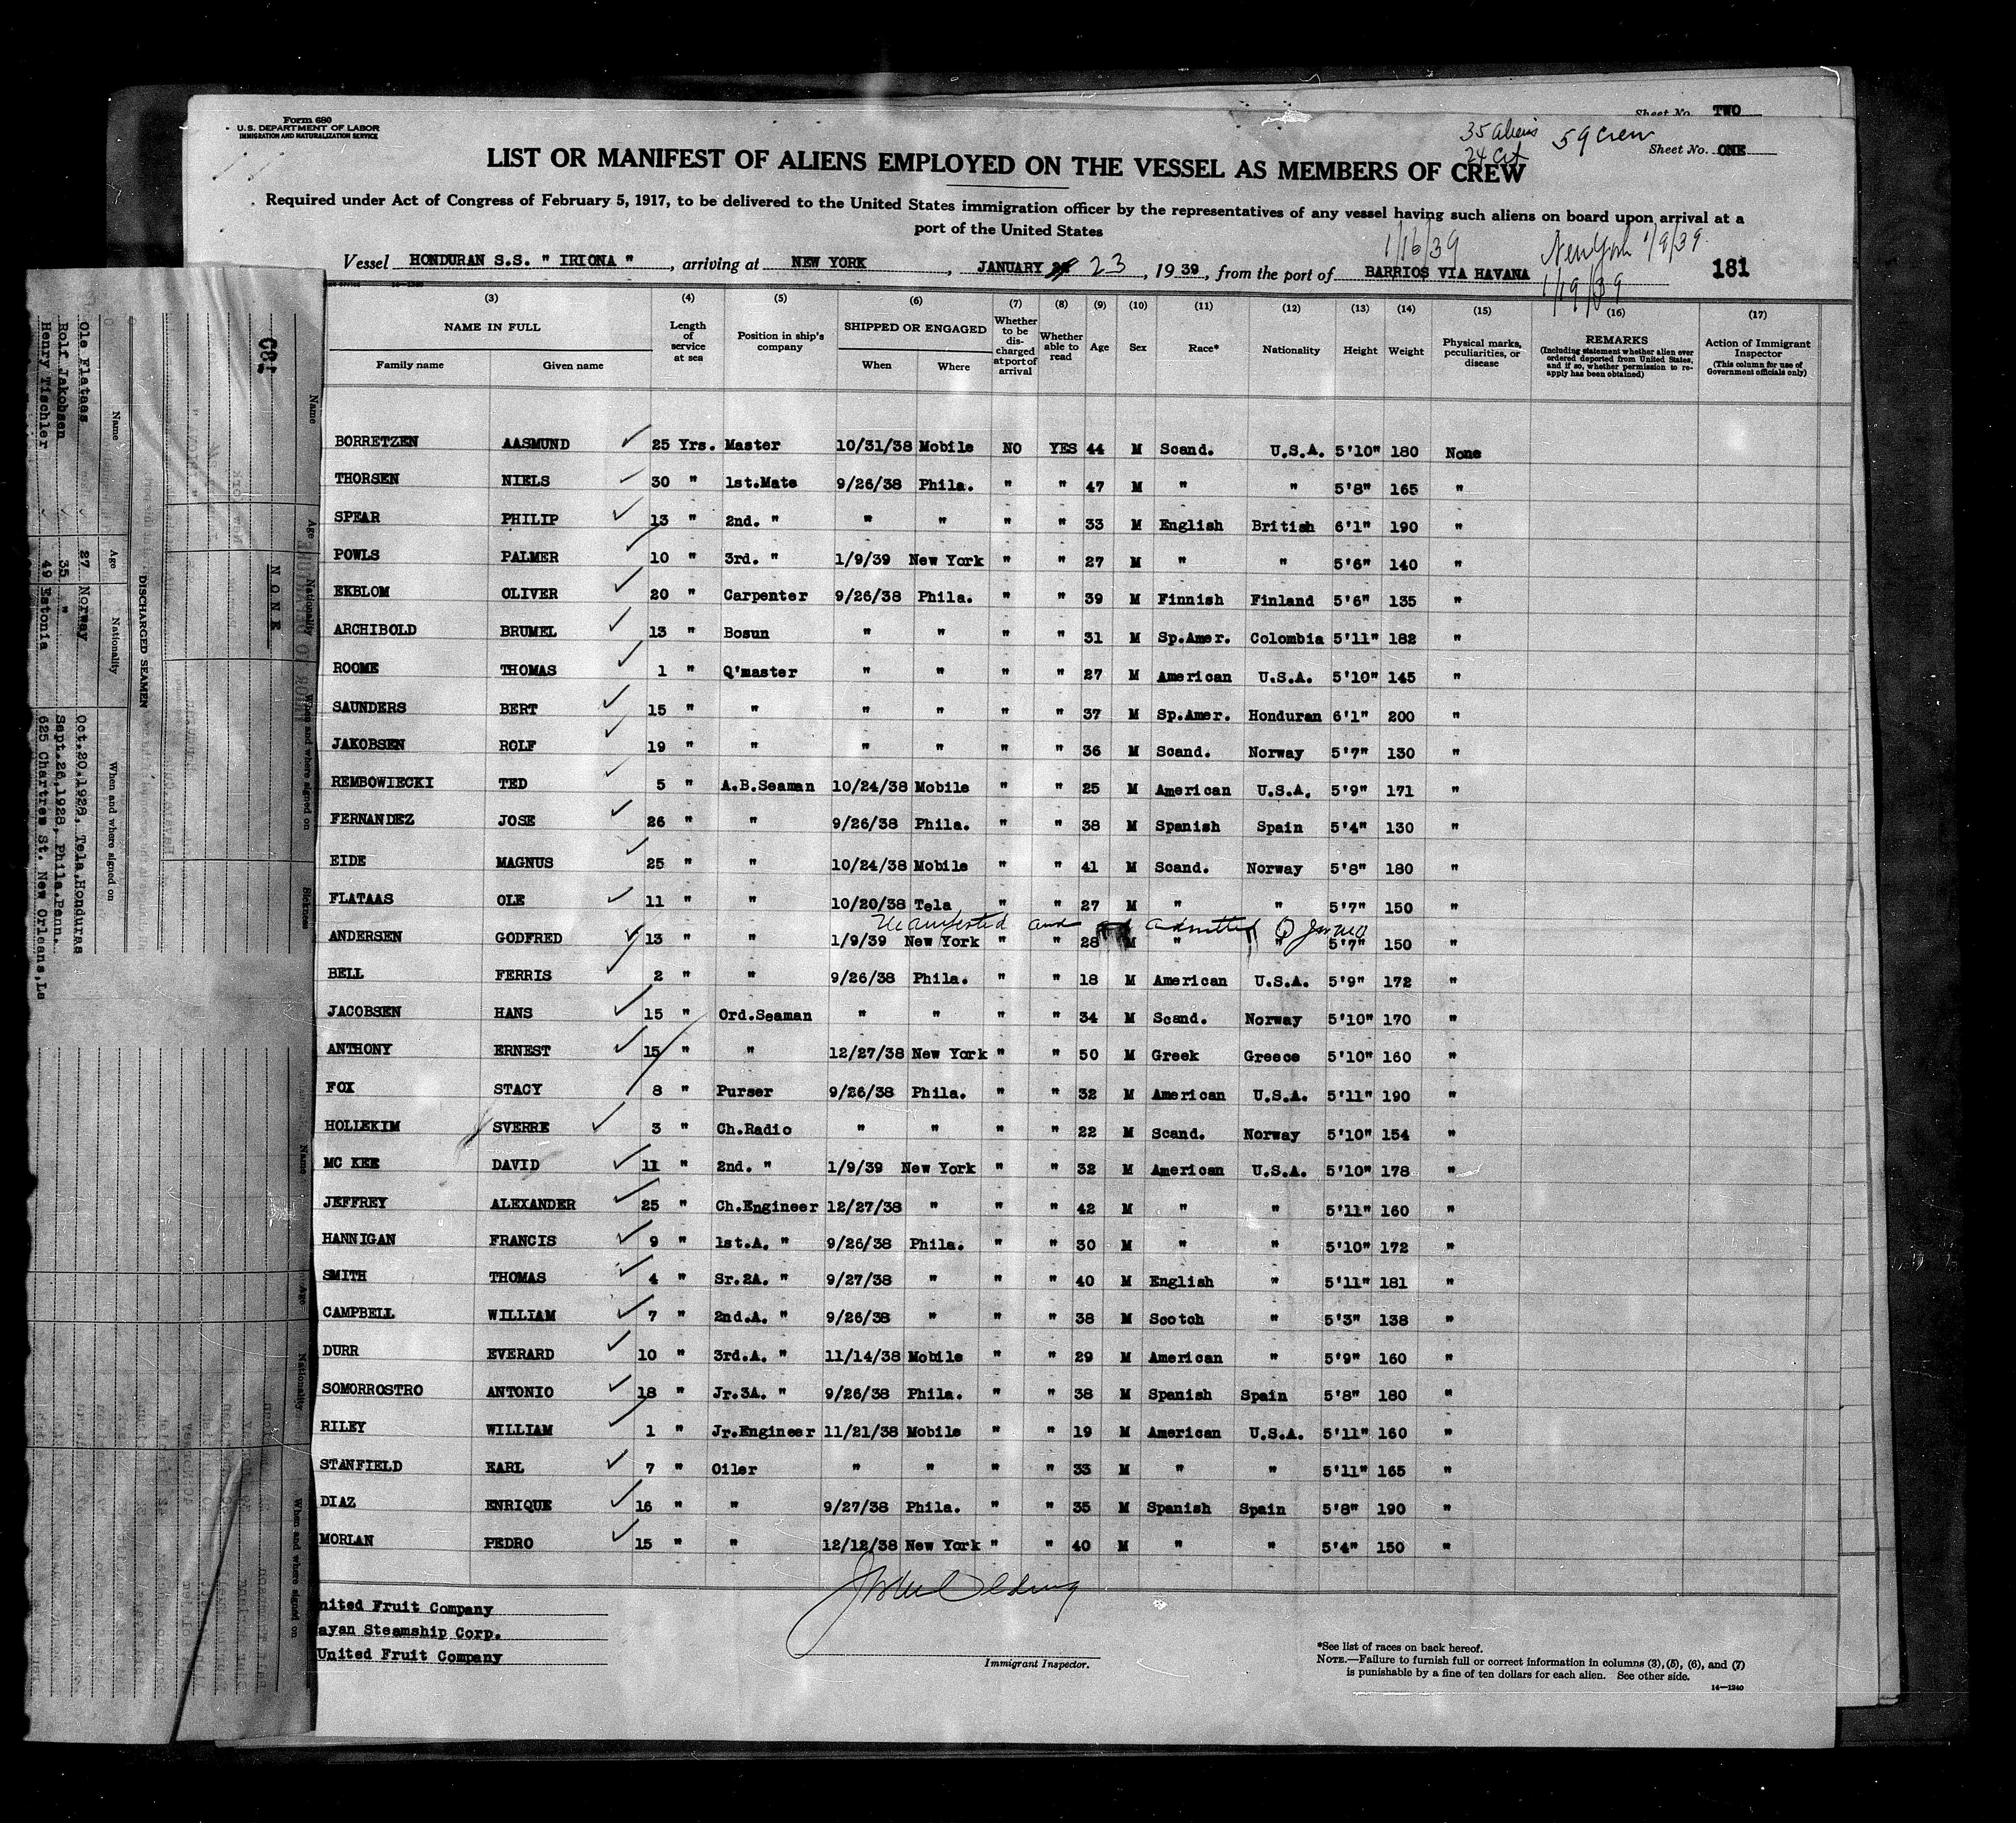 Form 680
U.S. DEPARTMENT OF LABOR
IMMIGRATION AND NATURALIZATION SERVICE
Sheet No. TWO
35 aliens 59 Crew
24 Cit
Sheet No. ONE
LIST OR MANIFEST OF ALIENS EMPLOYED ON THE VESSEL AS MEMBERS OF CREW
Required under Act of Congress of February 5, 1917, to be delivered to the United States immigration officer by the representatives of any vessel having such aliens on board upon arrival at a
port of the United States
1/16/39 New York 1/9/39
Vessel HONDURAN S.S. " IRIONA " , arriving at NEW YORK , JANUARY 23 , 19 39 , from the port of BARRIOS VIA HAVANA 181
1/19/39
(3) (4) (5) (6) (7) (8) (9) (10) (11) (12) (13) (14) (15) (16) (17)
NAME IN FULL Length of service at sea Position in ship's company SHIPPED OR ENGAGED Whether to be discharged at port of arrival Whether able to read Age Sex Race* Nationality Height Weight Physical marks, peculiarities, or disease REMARKS Action of Immigrant Inspector
(Including statement whether alien ever ordered deported from United States, and if so, whether permission to reapply has been obtained) (This column for use of Government officials only)
Family name Given name When Where
BORRETZEN AASMUND 25 Yrs. Master 10/31/38 Mobile NO YES 44 M Scand. U.S.A. 5'10" 180 None
THORSEN NIELS 30 " 1st.Mate 9/26/38 Phila. " " 47 M " " 5'8" 165 "
SPEAR PHILIP 13 " 2nd. " " " " " 33 M English British 6'1" 190 "
POWLS PALMER 10 " 3rd. " 1/9/39 New York " " 27 M " " 5'6" 140 "
EKBLOM OLIVER 20 " Carpenter 9/26/38 Phila. " " 39 M Finnish Finland 5'6" 135 "
ARCHIBOLD BRUMEL 13 " Bosun " " " " 31 M Sp.Amer. Colombia 5'11" 182 "
ROOME THOMAS 1 " Q'master " " " " 27 M American U.S.A. 5'10" 145 "
SAUNDERS BERT 15 " " " " " " 37 M Sp.Amer. Honduran 6'1" 200 "
JAKOBSEN ROLF 19 " " " " " " 36 M Scand. Norway 5'7" 130 "
REMBOWIECKI TED 5 " A.B.Seaman 10/24/38 Mobile " " 25 M American U.S.A. 5'9" 171 "
FERNANDEZ JOSE 26 " " 9/26/38 Phila. " " 38 M Spanish Spain 5'4" 130 "
EIDE MAGNUS 25 " " 10/24/38 Mobile " " 41 M Scand. Norway 5'8" 180 "
FLATAAS OLE 11 " " 10/20/38 Tela " " 27 M " " 5'7" 150 "
and admitted
ANDERSEN GODFRED 13 " " 1/9/39 New York " " 28 M " " 5'7" 150 "
BELL FERRIS 2 " " 9/26/38 Phila. " " 18 M American U.S.A. 5'9" 172 "
JACOBSEN HANS 15 " Ord.Seaman " " " " 34 M Scand. Norway 5'10" 170 "
ANTHONY ERNEST 15 " " 12/27/38 New York " " 50 M Greek Greece 5'10" 160 "
FOX STACY 8 " Purser 9/26/38 Phila. " " 32 M American U.S.A. 5'11" 190 "
HOLLEKIM SVERRE 3 " Ch.Radio " " " " 22 M Scand. Norway 5'10" 154 "
MC KEE DAVID 11 " 2nd. " 1/9/39 New York " " 32 M American U.S.A. 5'10" 178 "
JEFFREY ALEXANDER 25 " Ch.Engineer 12/27/38 " " " 42 M " " 5'11" 160 "
HANNIGAN FRANCIS 9 " 1st.A. " 9/26/38 Phila. " " 30 M " " 5'10" 172 "
SMITH THOMAS 4 " Sr.2A. " 9/27/38 " " " 40 M English " 5'11" 181 "
CAMPBELL WILLIAM 7 " 2nd.A. " 9/26/38 " " " 38 M Scotch " 5'3" 138 "
DURR EVERARD 10 " 3rd.A. " 11/14/38 Mobile " " 29 M American " 5'9" 160 "
SOMORROSTRO ANTONIO 18 " Jr.3A. " 9/26/38 Phila. " " 38 M Spanish Spain 5'8" 180 "
RILEY WILLIAM 1 " Jr.Engineer 11/21/38 Mobile " " 19 M American U.S.A. 5'11" 160 "
STANFIELD EARL 7 " Oiler " " " " 33 M " " 5'11" 165 "
DIAZ ENRIQUE 16 " " 9/27/38 Phila. " " 35 M Spanish Spain 5'8" 190 "
MORLAN PEDRO 15 " " 12/12/38 New York " " 40 M " " 5'4" 150 "
nited Fruit Company
ayan Steamship Corp.
United Fruit Company
Immigrant Inspector.
*See list of races on back hereof.
NOTE.—Failure to furnish full or correct information in columns (3), (5), (6), and (7)
is punishable by a fine of ten dollars for each alien. See other side.
14—1240
DISCHARGED SEAMEN
Name Age Nationality When and where signed on
Ole Flataas 27 Norway Oct.20,1928, Tela,Honduras
Rolf Jakobsen 35 " Sept.26,1928, Phila.Penn.
Henry Tischler 49 Estonia 625 Chartres St. New Orleans,La
NONE
Name Age Nationality When and where signed on Sickness
Name Age Nationality When and where signed on